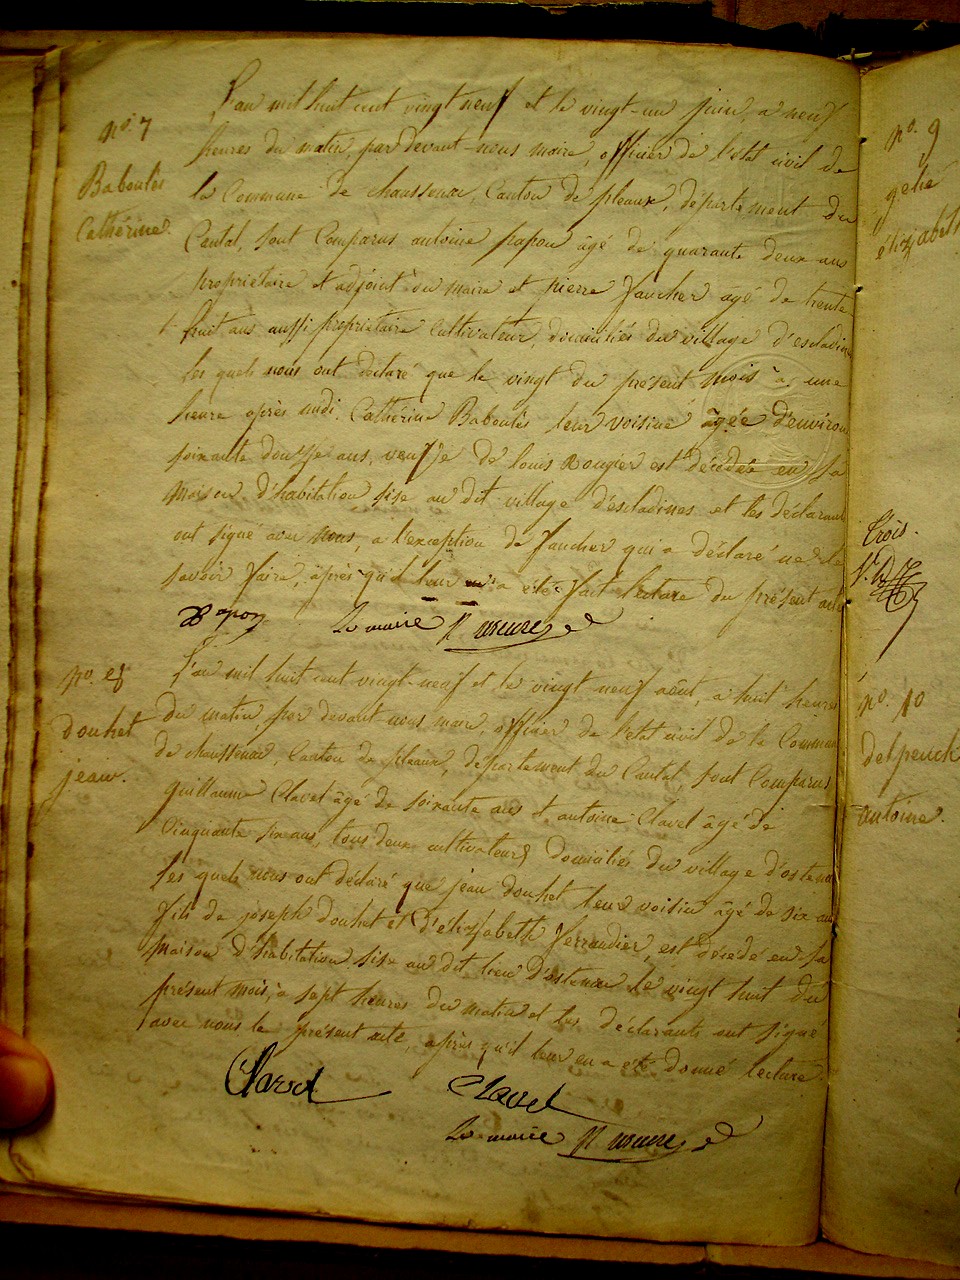 nº. 7
Baboulès
Cathérine.
L'an mil huit cent vingt neuf et le vingt-un juin, a neuf
heures du matin, par devant-nous maire, officier de l'etat civil de
la Commune de chaussenac, Canton de pleaux, département du
Cantal, sont Comparus antoine papon âgé de quarante deux ans
propriétaire et adjoint du maire et pierre faucher agé de trente
huit ans aussi propriétaire Cultivateur, domiciliés du village d'escladines
les quels nous ont déclaré que le vingt du présent mois à une
heure après midi, Cathérine Baboulès leur voisine âgée d'environ
soixante douze ans, veuve de louis Rougier est décédée en sa
maison d'habitation sise au dit village d'escladines et les déclarants
ont signé avec nous, a l'exception de faucher qui a déclaré ne le
savoir faire, après qu'il leur en a été fait lecture du présent acte
Papon Le maire
nº. 8
douhet
jean.
L'an mil huit cent vingt-neuf et le vingt neuf août, a huit heures
du matin par devant-nous maire, officier de l'etat civil de la Commune
de chaussenac, Canton de pleaux, département du Cantal sont Comparus
guillaume Clavel âgé de soixante ans et antoine Clavel âgé de
Cinquante six ans, tous deux cultivateurs domiciliés du village d'ostenac
les quels nous ont déclaré que jean douhet leur voisin âgé de six ans
fils de joseph douhet et d'élizabeth ferrandier, est décédé en sa
maison d'habitation sise au dit lieu d'ostenac le vingt huit du
présent mois, à sept heures du matin et les déclarants ont signé
avec nous le présent acte, après qu'il leur en a été donné lecture.
Clavel Clavel
Le maire
nº. 9
élizabeth
trois.
nº. 10
delpeuch
antoine.